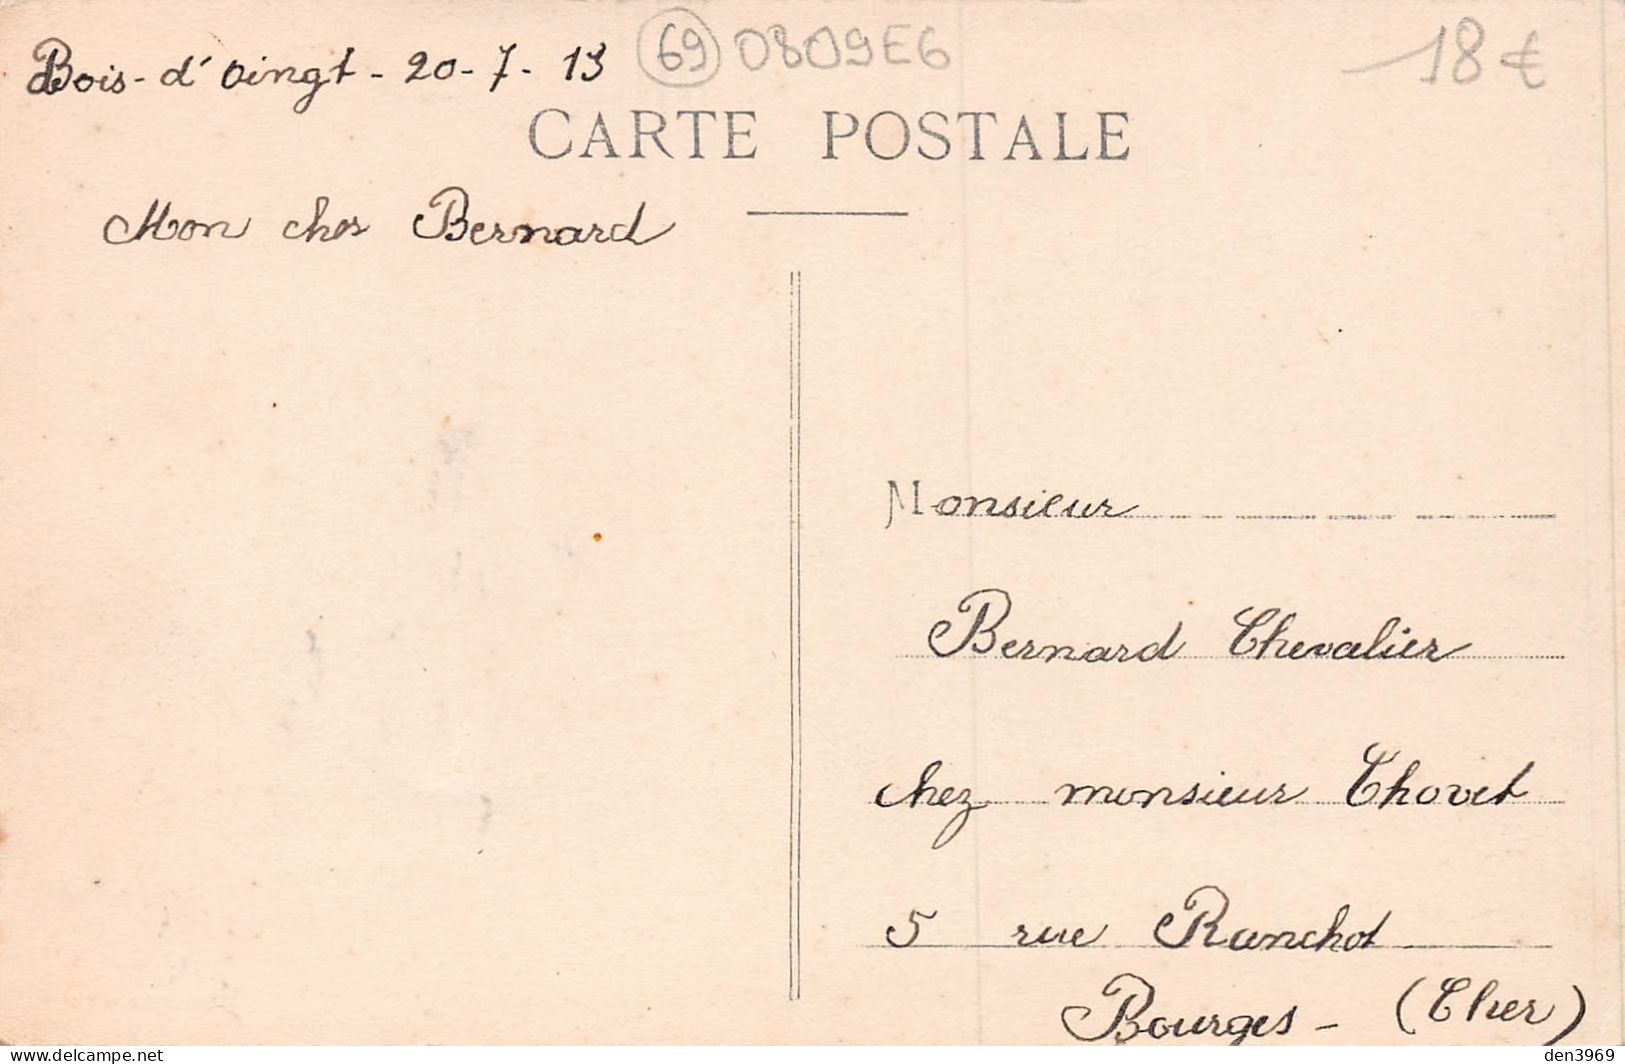 Bois-d'Oingt - 20-7-13
69 0809E6
18€
CARTE POSTALE
Mon cher Bernard
Monsieur
Bernard Chevalier
chez monsieur Chovet
5 rue Ranchot
Bourges - (Cher)
den3969